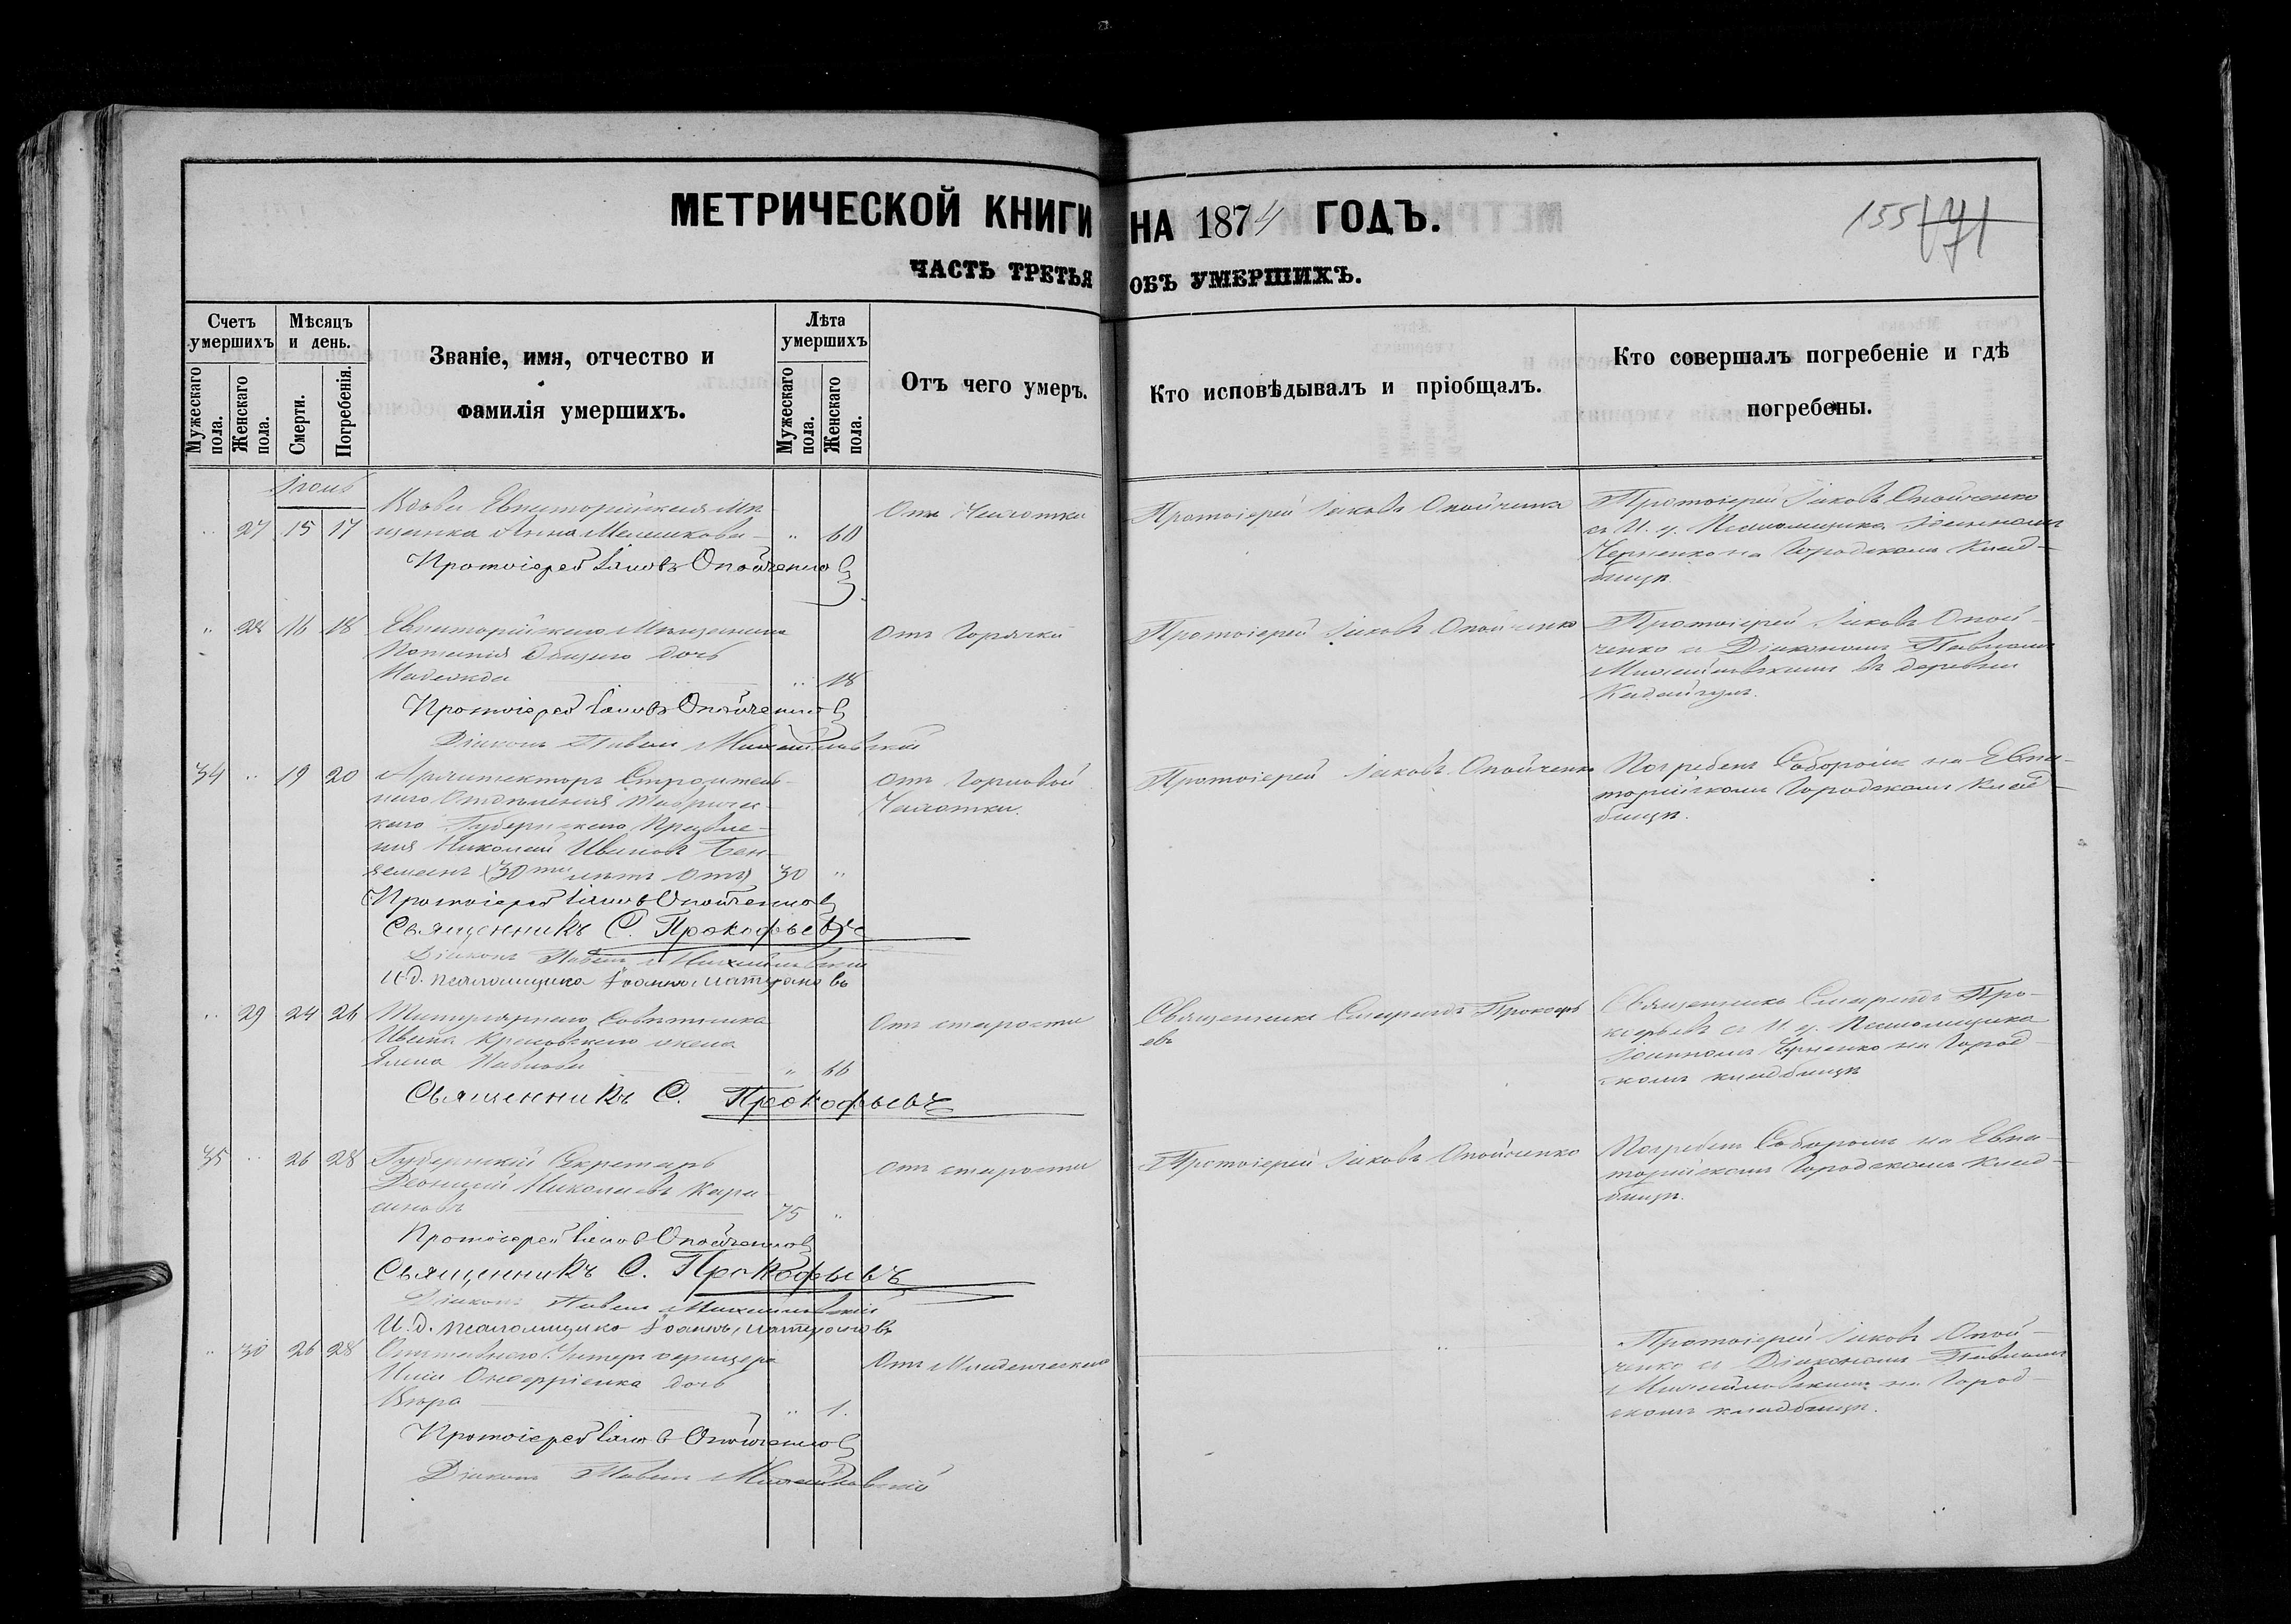 МЕТРИЧЕСКОЙ КНИГИ НА 1874 ГОДЪ.
155
ЧАСТЬ ТРЕТЬЯ ОБЪ УМЕРШИХЪ.
Счетъ умершихъ
Мужескаго пола.
Женскаго пола.
Мѣсяцъ и день.
Смерти.
Погребенія.
Званіе, имя, отчество и фамилія умершихъ.
Лѣта умершихъ
Мужескаго пола.
Женскаго пола.
Отъ чего умеръ.
Кто исповѣдывалъ и пріобщалъ.
Кто совершалъ погребеніе и гдѣ погребены.
27 15 17
Вдова Евпаторійская Мѣ-
щанка Анна
„ 60
Отъ Чахотки
Протоіерей Іаковъ Опойченко
Протоіерей Іаковъ Опойченко
съ И. д. Псаломщика Іоанномъ
Черненко на Городскомъ Клад-
бищѣ
Протоіерей Іаковъ Опойченко
„ 28 16 18
Евпаторійскаго Мѣщанина
дочь
Надежда
„ 18
Отъ Горячки
Протоіерей Іаковъ Опойченко
Протоіерей Іаковъ Опой-
ченко съ Діакономъ Павломъ
Михайловскимъ въ деревни
Протоіерей Іаковъ Опойченко
Діаконъ Павелъ Михайловскій
34 „ 19 20
Архитекторъ Строитель-
наго Отдѣленія Тавричес-
каго Губернскаго Правле-
нія Николай Ивановъ
(30ти лѣтъ отъ) 30 „
Отъ Горловой
Чахотки.
Протоіерей Іаковъ Опойченко
Погребенъ Соборомъ на Евпа-
торійскомъ Городскомъ Клад-
бищѣ.
Протоіерей Іаковъ Опойченко
Священникъ С. Прокофьевъ
Діаконъ Павелъ Михайловскій
И.д. псаломщика Іоаннъ
„ 29 24 26
Титулярнаго Совѣтника
Ивана жена
Елена Павлова
„ 66
Отъ старости
Священникъ Спиридъ Прокофь
евъ
Священникъ Спиридъ Про-
кофьевъ съ И. д. Псаломщика
Іоанномъ Черненко на Город-
скомъ кладбищѣ
Священникъ С. Прокофьевъ
35 „ 26 28
Губернскій Секретарь
Николаевъ Кара
75 „
Отъ старости
Протоіерей Іаковъ Опойченко
Погребенъ Соборомъ на Евпа-
торійскомъ Городскомъ Клад-
бищѣ.
Протоіерей Іаковъ Опойченко
Священникъ С. Прокофьевъ
Діаконъ Павелъ Михайловскій
И.д. псаломщика Іоаннъ
„ 30 26 28
Отставнаго Унтеръ офицера
дочь
„ 1.
Отъ Младенческой
„
Протоіерей Іаковъ Опой-
ченко съ Діакономъ Павломъ
Михайловскимъ на Город-
скомъ кладбищѣ.
Протоіерей Іаковъ Опойченко
Діаконъ Павелъ Михайловскій